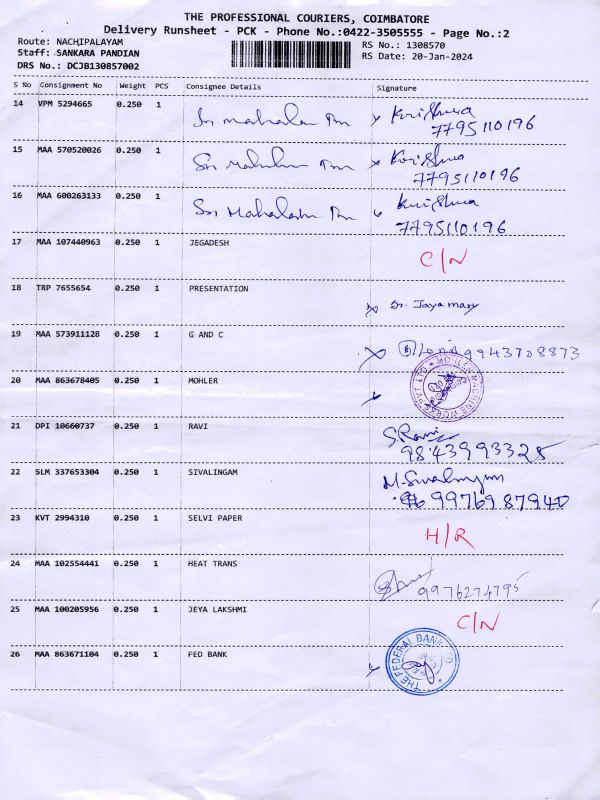 THE PROFESSIONAL COURIERS, COIMBATORE
Delivery Runsheet - PCK - Phone No.:0422-3505555 - Page No.:2
Route: NACHIPALAYAM
Staff: SANKARA PANDIAN
DRS No.: DCJB130857002
RS No.: 1308570
RS Date: 20-Jan-2024
S No Consignment No Weight PCS Consignee Details Signature
14 VPM 5294665 0.250 1 Sri Krishna
7795110196
15 MAA 570520026 0.250 1 Sri Krishna
7795110196
16 MAA 600263133 0.250 1 Sri Mahalashm Krishna
7795110196
17 MAA 107440963 0.250 1 JEGADESH C/N
18 TRP 7655654 0.250 1 PRESENTATION Sr. Jayamary
19 MAA 573911128 0.250 1 G AND C 9943708873
20 MAA 863678405 0.250 1 MOHLER
21 DPI 10660737 0.250 1 RAVI S. Ravi
9843993325
22 SLM 337653304 0.250 1 SIVALINGAM M. Sivalingam
9976987940
23 KVT 2994310 0.250 1 SELVI PAPER H/R
24 MAA 102554441 0.250 1 HEAT TRANS 9976274795
25 MAA 100205956 0.250 1 JEYA LAKSHMI C/N
26 MAA 863671104 0.250 1 FED BANK THE FEDERAL BANK LTD